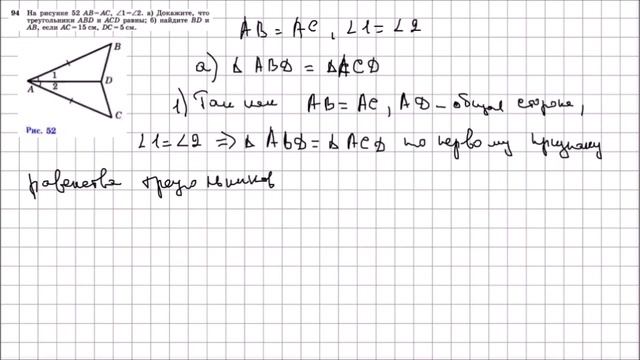 94 На рисунке 52 AB=AC, ∠1=∠2. а) Докажите, что
треугольники ABD и ACD равны; б) найдите BD и
AB, если AC=15 см, DC=5 см.
B
1
A
2
D
C
Рис. 52
AB = AC, ∠1 = ∠2
а) Δ ABD = ΔACD
1) Так как AB = AC, AD – общая сторона,
∠1=∠2 ⇒ Δ ABD = Δ ACD по первому признаку
равенства треугольников